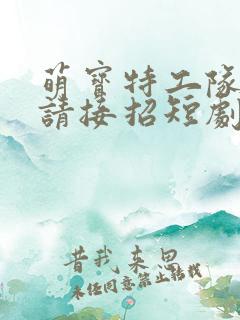 萌寶特工隊
請接招短劇
昔我来思
未任同意禁止轉載